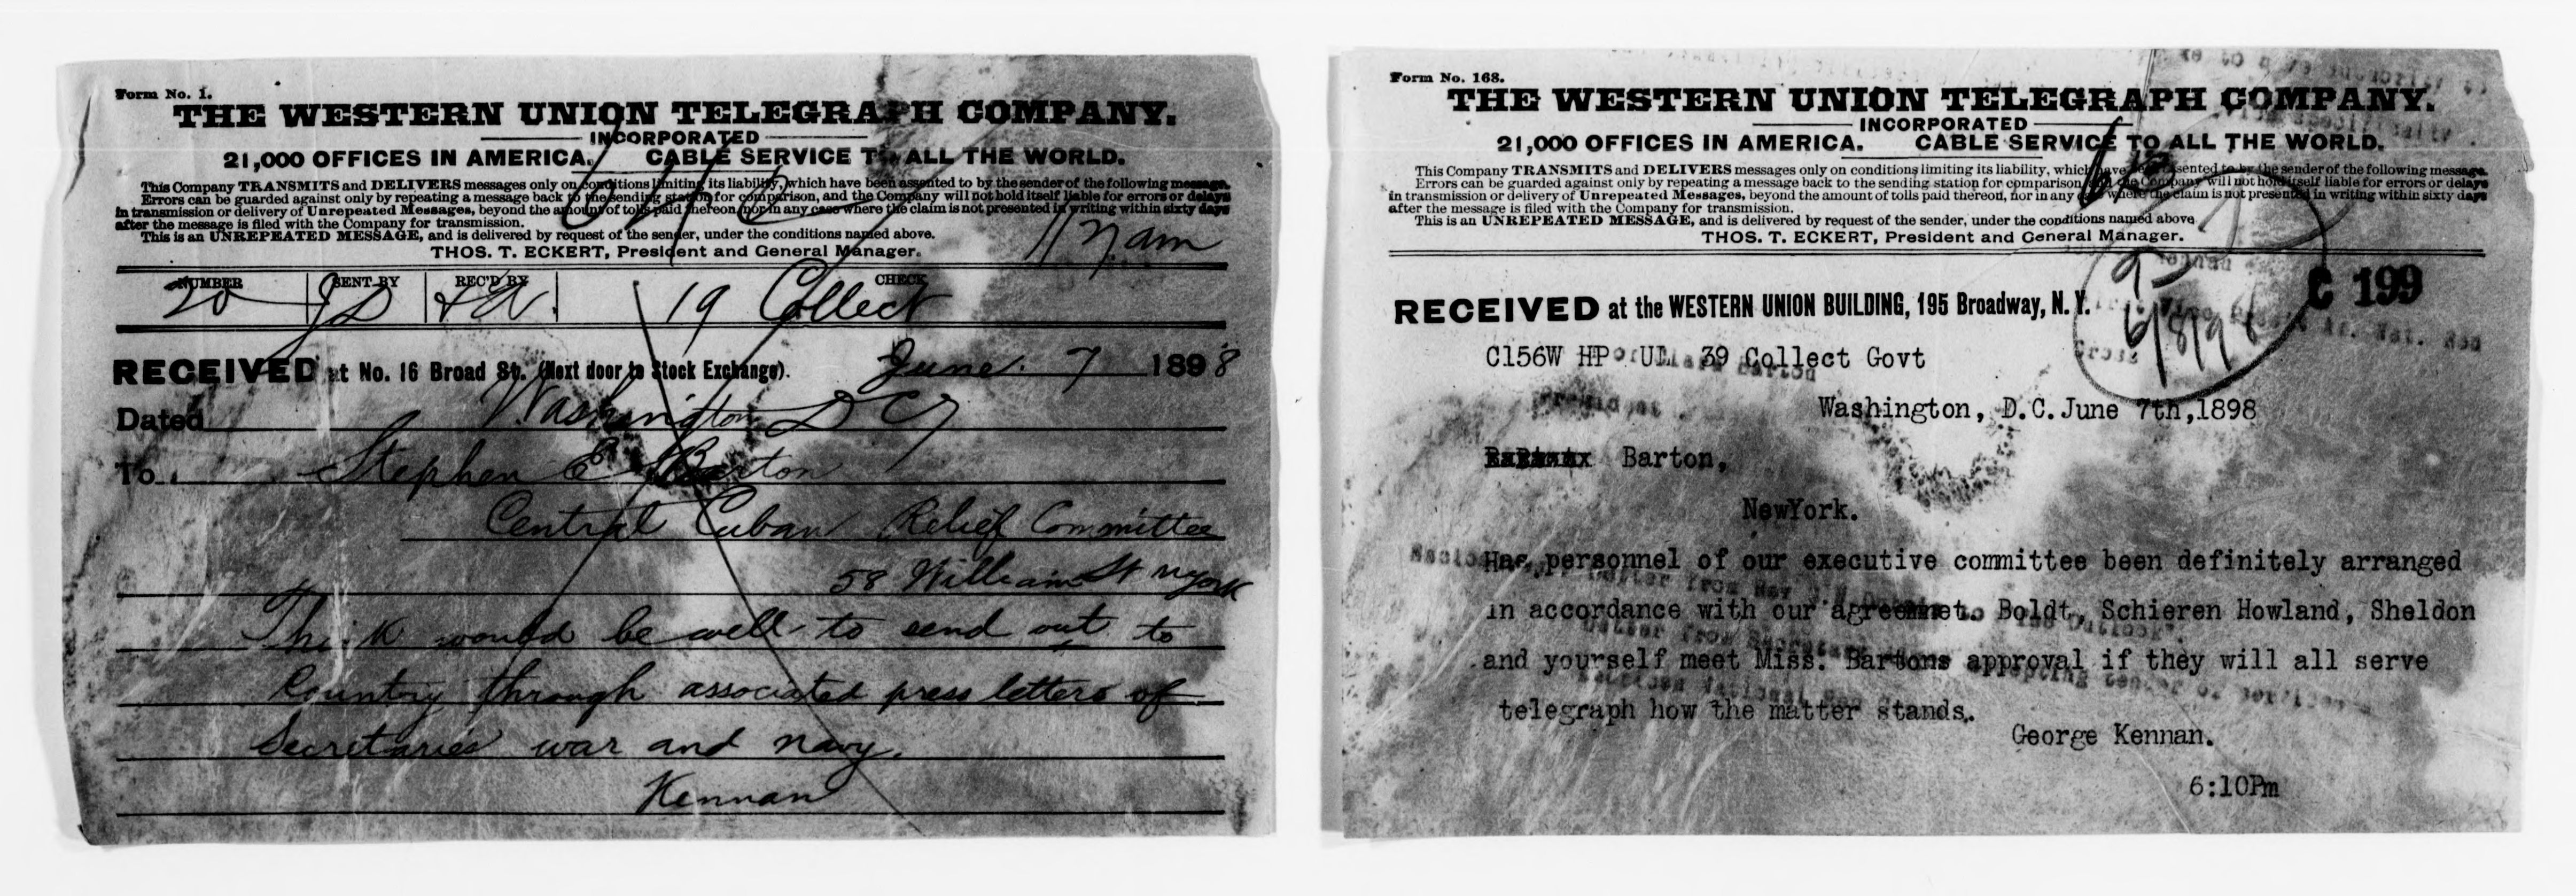 Form No. 1.
THE WESTERN UNION TELEGRAPH COMPANY.
INCORPORATED
21,000 OFFICES IN AMERICA. CABLE SERVICE TO ALL THE WORLD.
This Company TRANSMITS and DELIVERS messages only on conditions limiting its liability, which have been assented to by the sender of the following message.
Errors can be guarded against only by repeating a message back to the sending station for comparison, and the Company will not hold itself liable for errors or delays
in transmission or delivery of Unrepeated Messages, beyond the amount of tolls paid thereon, nor in any case where the claim is not presented in writing within sixty days
after the message is filed with the Company for transmission.
This is an UNREPEATED MESSAGE, and is delivered by request of the sender, under the conditions named above.
THOS. T. ECKERT, President and General Manager.
NUMBER SENT BY REC'D BY CHECK
20 JD 19 Collect
RECEIVED at No. 16 Broad St. (Next door to Stock Exchange). June 7 1898
Dated Washington DC
To Stephen E Barton
Central Cuban Relief Committee
58 William St NYork
Think would be well to send out to
Country through associated press letters of
Secretaries war and navy.
Kennan
Form No. 168.
THE WESTERN UNION TELEGRAPH COMPANY.
INCORPORATED
21,000 OFFICES IN AMERICA. CABLE SERVICE TO ALL THE WORLD.
This Company TRANSMITS and DELIVERS messages only on conditions limiting its liability, which have been assented to by the sender of the following message.
Errors can be guarded against only by repeating a message back to the sending station for comparison, and the Company will not hold itself liable for errors or delays
in transmission or delivery of Unrepeated Messages, beyond the amount of tolls paid thereon, nor in any case where the claim is not presented in writing within sixty days
after the message is filed with the Company for transmission.
This is an UNREPEATED MESSAGE, and is delivered by request of the sender, under the conditions named above.
THOS. T. ECKERT, President and General Manager.
C 199
RECEIVED at the WESTERN UNION BUILDING, 195 Broadway, N. Y.
6/8/98
C156W HP UL 39 Collect Govt
Washington, D.C. June 7th, 1898
Barton,
NewYork.
Has personnel of our executive committee been definitely arranged
in accordance with our agreemnet. Boldt, Schieren Howland, Sheldon
and yourself meet Miss. Bartons approval if they will all serve
telegraph how the matter stands.
George Kennan.
6:10Pm